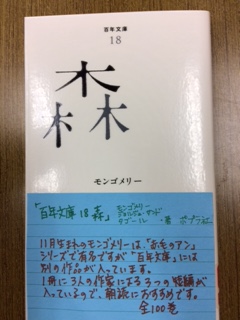 百年文庫
18
森
モンゴメリー
「百年文庫 18 森」
モンゴメリー
ジョルジュ・サンド
タゴール
・著 ポプラ社
11月生まれのモンゴメリーは、「赤毛のアン」
シリーズで有名ですが「百年文庫」には
別の作品が入っています。
1冊に3人の作家による3つの短編が
入っているので、朗読におすすめです。
全100巻